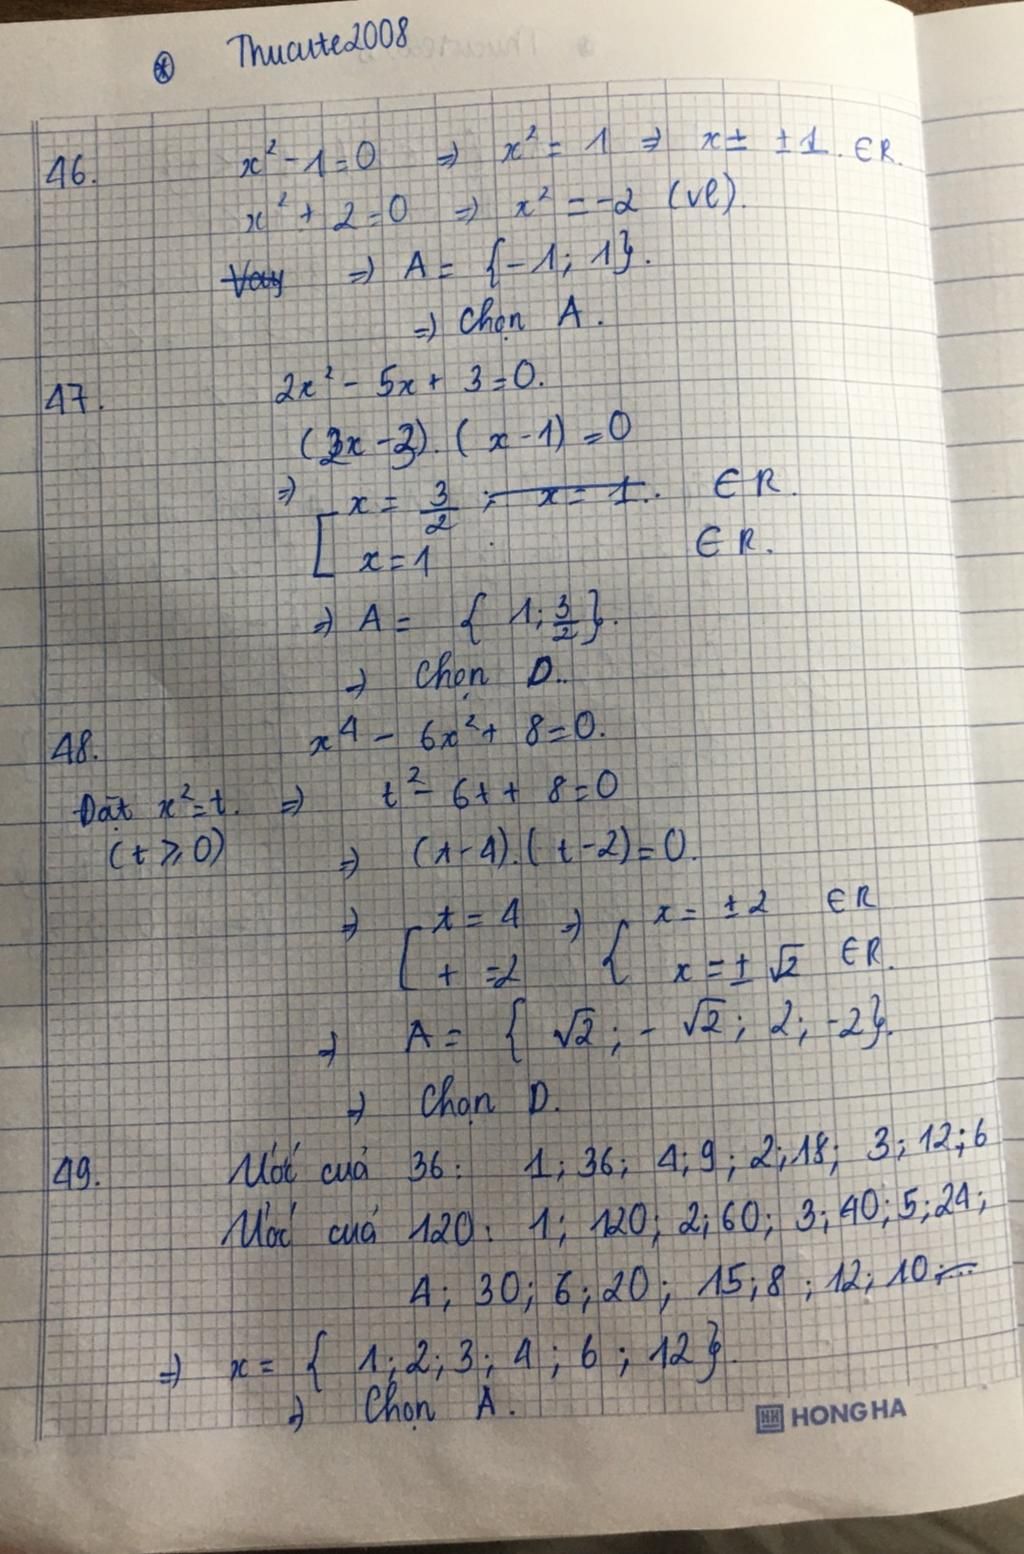 Thucute2008
46. x² - 1 = 0 => x² = 1 => x = ± 1. ∈ R.
x² + 2 = 0 => x² = -2 (vl).
Vay => A = {-1; 1}.
=> Chọn A.
47. 2x² - 5x + 3 = 0.
(2x - 3).(x - 1) = 0
=> [ x = 3/2 ; x = 1. ∈ R.
x = 1 ∈ R.
=> A = { 1; 3/2 }.
=> Chọn D..
48. x⁴ - 6x² + 8 = 0.
Đặt x² = t. => t² - 6t + 8 = 0
(t ≥ 0) => (t - 4).(t - 2) = 0.
=> [ t = 4 => { x = ± 2 ∈ R
t = 2 x = ± √2 ∈ R.
=> A = { √2 ; - √2 ; 2 ; -2 }.
=> Chọn D.
49. Ước cuả 36 : 1 ; 36 ; 4 ; 9 ; 2 ; 18 ; 3 ; 12 ; 6
Ước cuả 120 : 1 ; 120 ; 2 ; 60 ; 3 ; 40 ; 5 ; 24 ;
4 ; 30 ; 6 ; 20 ; 15 ; 8 ; 12 ; 10 ; ...
=> x = { 1 ; 2 ; 3 ; 4 ; 6 ; 12 }.
=> Chọn A.
HH HONG HA